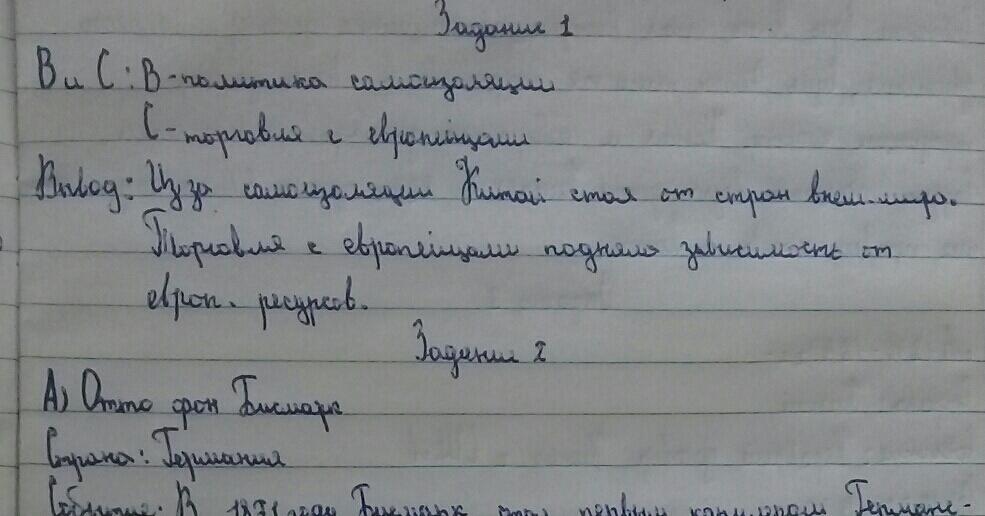 Задание 1
В и С: В - политика самоизоляции
С - торговля с европейцами
Вывод: Из за самоизоляции Китай стал от стран внеш. мира.
Торговля с европейцами подняла зависимость от
европ. ресурсов.
Задание 2
А) Отто фон Бисмарк
Страна: Германия
Событие: В 1871 году Бисмарк стал первым канцлером Германс-